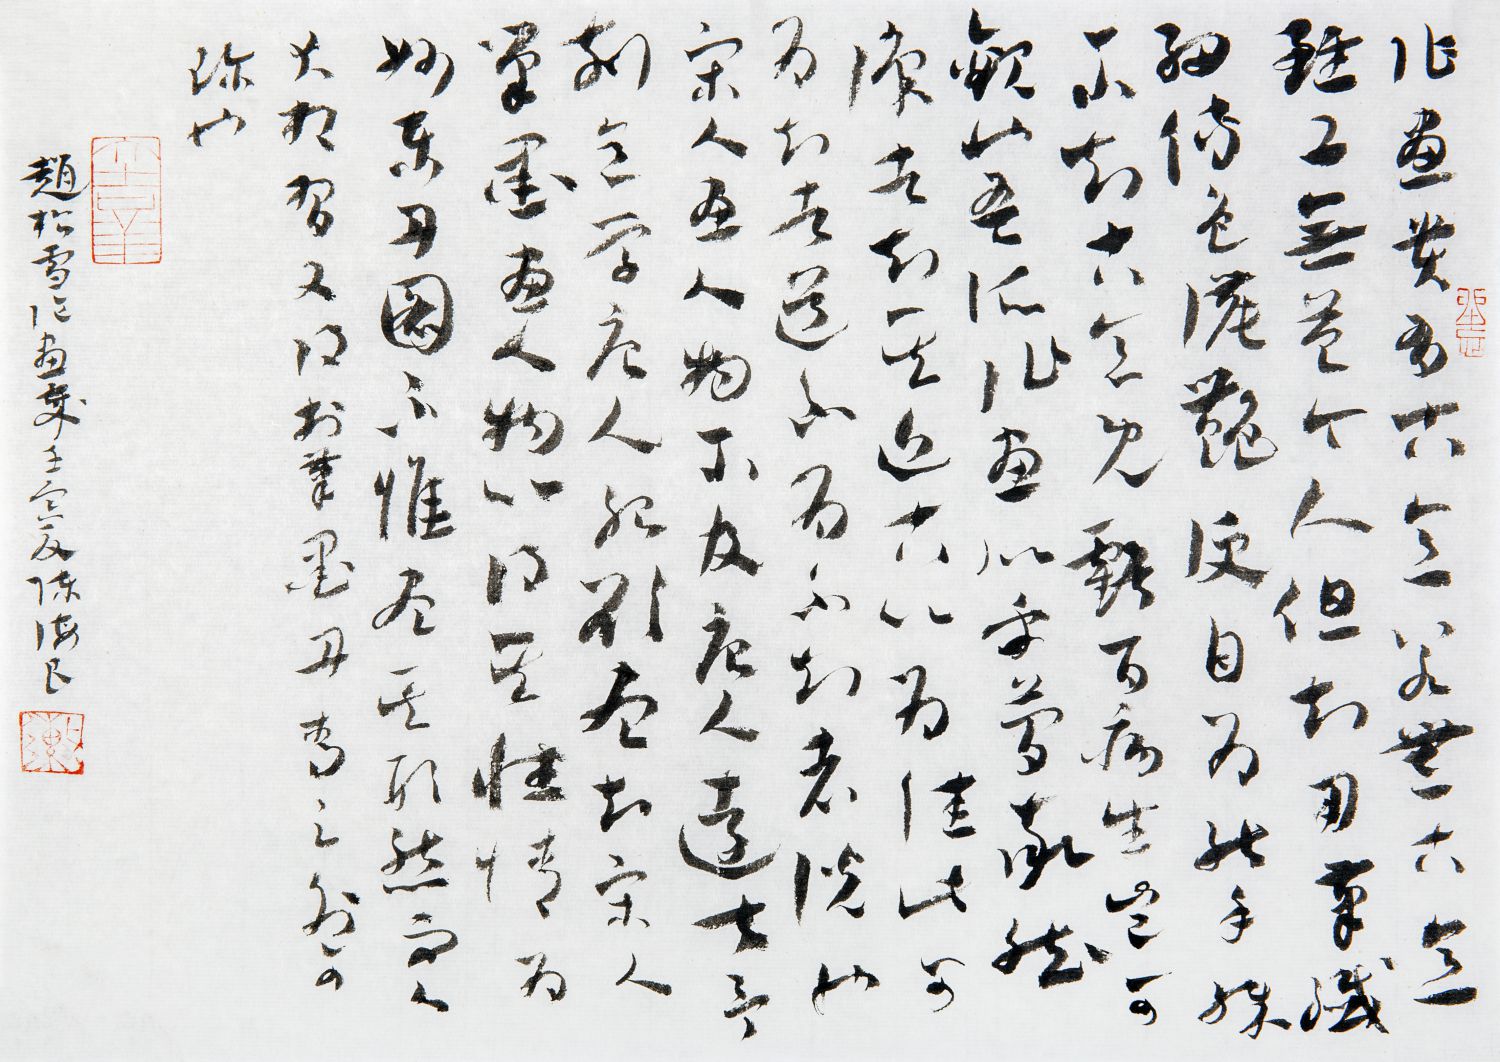 作画貴有古意若無古意
雖工無益今人但知用筆纖
細傅色濃艷便自为能手殊
不知古意既虧百病生豈可
觀也吾所作画似乎簡率然
識者知其近古以为佳此可
为知者道不为不知者説也
宋人画人物不及唐人遠甚予
刻意学唐人殆欲尽去宋人
筆墨画人物以得其性情为
妙東丹圖不惟尽其形然而人
犬相習又得於筆墨丹青之外可
珍也
趙松雪论画歲壬寅夏陳海良